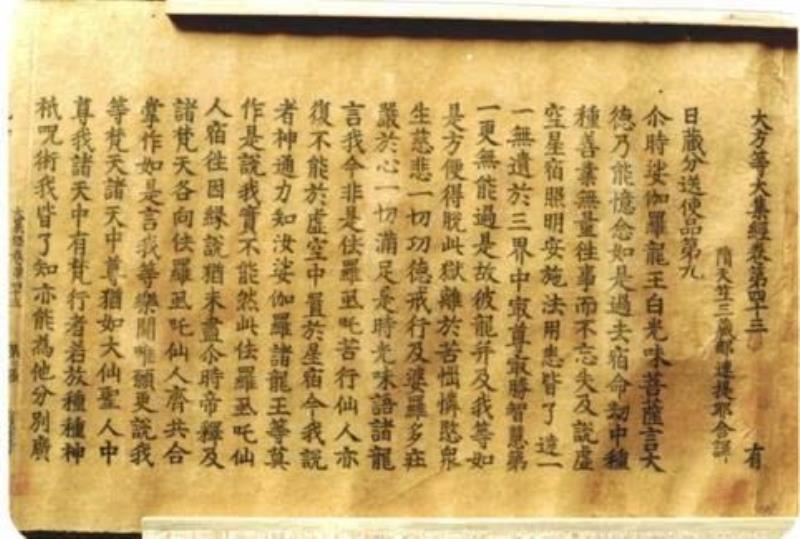 大方等大集經卷第四十三 有
隋天竺三藏那連提耶舍譯
日藏分送使品第九
尒時娑伽羅龍王白光味菩薩言大
德乃能憶念如是過去宿命劫中種
種善業無量往事而不忘失及說虛
空星宿照明安施法用悉皆了達一
一無遺於三界中㝡尊㝡勝智慧第
一更無能過是故彼龍并及我等如
是方便得脫此獄離於苦惱憐愍衆
生慈悲一切功德戒行及婆羅多莊
嚴於心一切滿足是時光味語諸龍
言我今非是佉羅虱吒苦行仙人亦
復不能於虛空中置於星宿今我說
者神通力知汝娑伽羅諸龍王等莫
作是說我實不能然此佉羅虱吒仙
人宿往因緣說猶未盡尒時帝釋及
諸梵天各向佉羅虱吒仙人齊共合
掌作如是言我等樂聞唯願更說我
等梵天諸天中尊猶如大仙聖人中
尊我諸天中有梵行者若放種種神
祇呪術我皆了知亦能為他分別廣